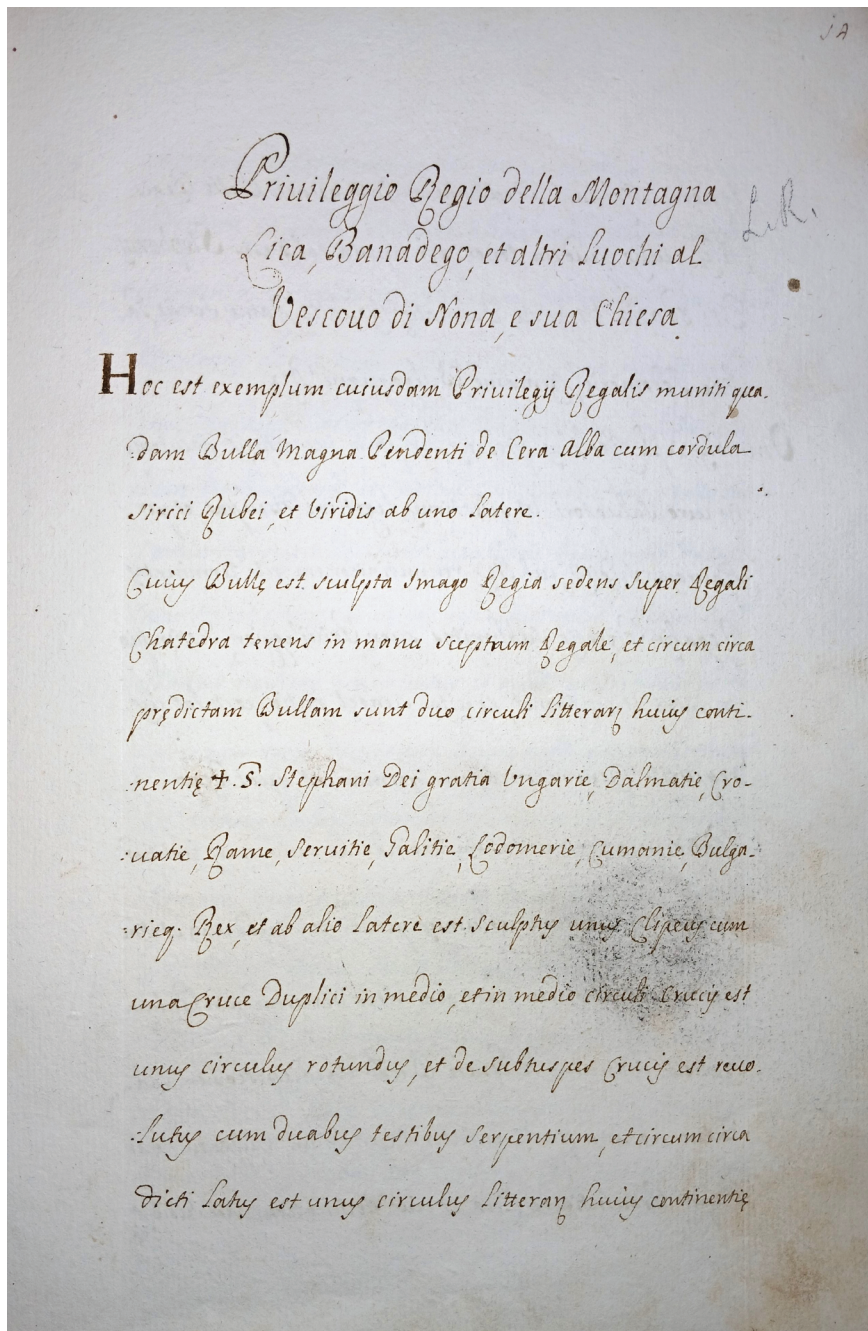 Priuileggio Regio della Montagna
L.R.
Lica, Banadego, et altri Luochi al
Vescouo di Nona, e sua Chiesa
Hoc est exemplum cuiusdam Priuilegij Regalis muniti qua-
:dam Bulla Magna Pendenti de Cera Alba cum cordula
sirici Rubei, et Viridis ab uno Latere.
Cuius Bullę est sculpta Imago Regia sedens super Regali
Chatedra tenens in manu sceptrum Regale, et circum circa
prędictam Bullam sunt duo circuli Litterarꝝ huius conti-
:nentię ✝. S. Stephani Dei gratia Vngarie, Dalmatie, Cro-
:uatie, Rame, Seruitie, Galitie, Lodomerie, Cumanie, Bulga-
:rieq. Rex, et ab alio Latere est sculptus unus Clipeus cum
una Cruce Duplici in medio, et in medio circuli Crucis est
unus circulus rotundus, et de subtus pes Crucis est reuo-
:lutus cum duabus testibus serpentium, et circum circa
dicti Latus est unus circulus Litterarꝝ huius continentię